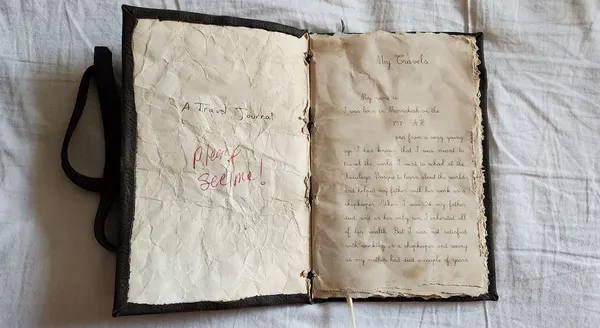 A Travel Journal
please
see me!
My Travels
My name is
I was born in Marrakech in the
757 A.H.
and from a very young
age I have known that I was meant to
travel the world. I went to school at the
Mosque to learn about the world,
and helped my father with his work as a
shopkeeper. When I was 24 my father
died and as his only son I inherited all
of his wealth. But I was not satisfied
with working as a shopkeeper and seeing
as my mother had died a couple of years